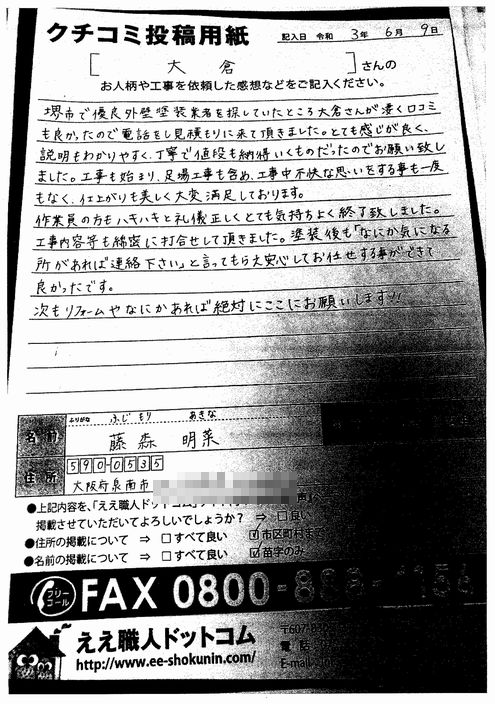 クチコミ投稿用紙
記入日 令和 3年 6月 9日
[ 大倉 ]さんの
お人柄や工事を依頼した感想などをご記入ください。
堺市で優良外壁塗装業者を探していたところ大倉さんが凄く口コミ
も良かったので電話をし見積もりに来て頂きました。とても感じが良く、
説明もわかりやすく、丁寧で値段も納得いくものだったのでお願い致し
ました。工事も始まり、足場工事も含め、工事中不快な思いをする事も一度
もなく、仕上がりも美しく大変満足しております。
作業員の方もハキハキと礼儀正しくとても気持ちよく終了致しました。
工事内容等も綿密に打合せして頂きました。塗装後も「なにか気になる
所があれば連絡下さい」と言ってもらえ安心してお任せする事ができて
良かったです。
次もリフォームやなにかあれば絶対にここにお願いします!!
ふりがな ふじもり あきな
名前 藤森 明菜
住所 590-0535
大阪府泉南市
●上記内容を、「ええ職人ドットコム」
掲載させていただいてよろしいでしょうか? ⇒ □良い
●住所の掲載について ⇒ □すべて良い ☑市区町村まで
●名前の掲載について ⇒ □すべて良い ☑苗字のみ
フリーコール FAX 0800-888-1156
ええ職人ドットコム
http://www.ee-shokunin.com/
〒607
電話
E-mail